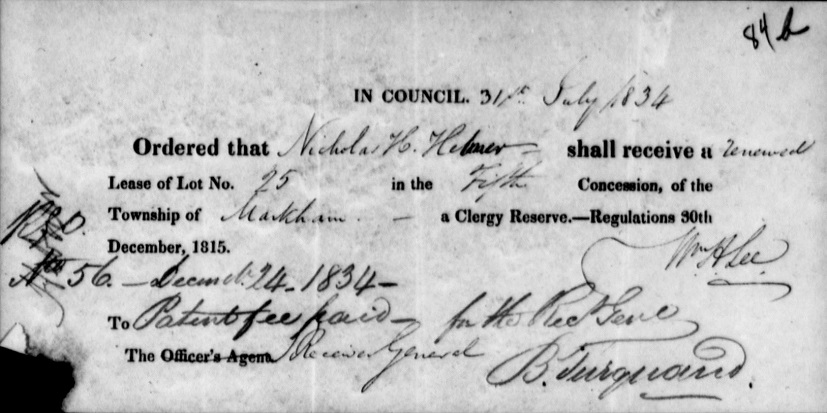 84 b
IN COUNCIL. 31st July 1834
Ordered that Nicholas H. Helmer shall receive a renewed
Lease of Lot No. 25 in the Fifth Concession, of the
Township of Markham — a Clergy Reserve.—Regulations 30th
December, 1815.
Wm H Lee
No 56. — Decemb. 24 - 1834 -
To Patent fee paid — for the Recr Genl
The Officer's Agent. Receiver General
B. Turquand.